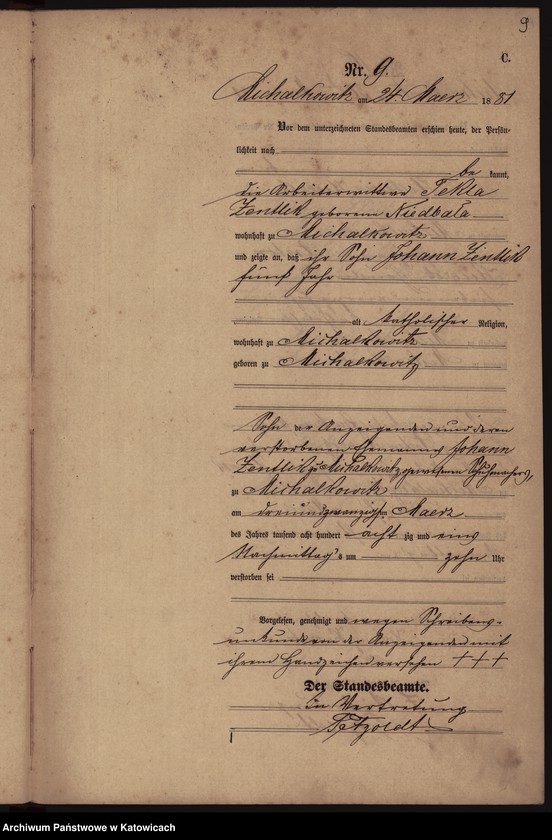 9
C.
Nr. 9.
Michalkowitz am 24. Maerz 1881
Vor dem unterzeichneten Standesbeamten erschien heute, der Persön-
lichkeit nach
be kannt,
die Arbeiterwittwe Tekla
Zentlik geborene Niedbala
wohnhaft zu Michalkowitz
und zeigte an, daß ihr Sohn Johann Zentlik
fünf Jahr
alt katholischer Religion,
wohnhaft zu Michalkowitz
geboren zu Michalkowitz
Sohn der Anzeigenden und deren
verstorbenen Ehemanns Johann
Zentlik zu Michalkowitz gewesenen Schuhmachers,
zu Michalkowitz
am dreiundzwanzigsten Maerz
des Jahres tausend acht hundert acht zig und eins
Nachmittag s um zehn Uhr
verstorben sei
Vorgelesen, genehmigt und wegen Schreibens-
unkunde von der Anzeigenden mit
ihrem Handzeichen versehen +++
Der Standesbeamte.
In Vertretung
Petzoldt
Archiwum Państwowe w Katowicach